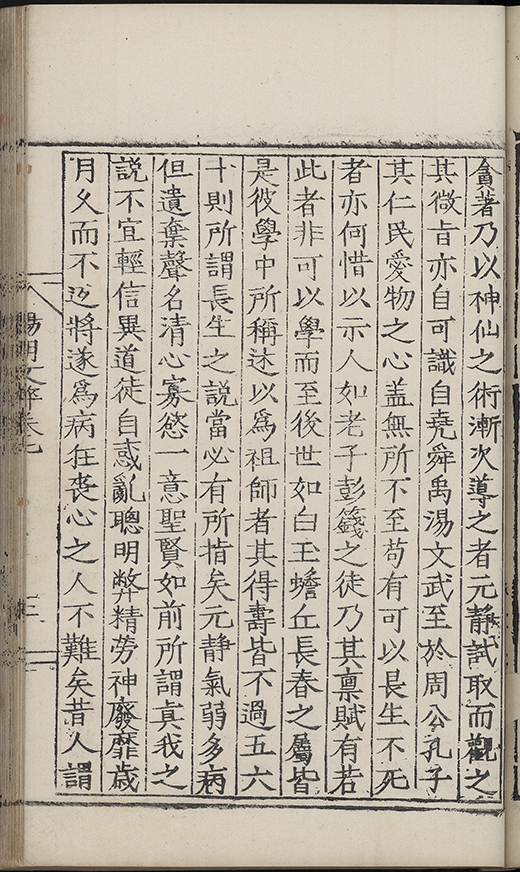 貪著乃以神仙之術漸次導之者元静試取而觀之
其微旨亦自可識自堯舜禹湯文武至於周公孔子
其仁民愛物之心蓋無所不至苟有可以長生不死
者亦何惜以示人如老子彭籛之徒乃其禀賦有若
此者非可以學而至後世如白玉蟾丘長春之屬皆
是彼學中所稱述以爲祖師者其得壽皆不過五六
十則所謂長生之説當必有所指矣元静氣弱多病
但遺棄聲名清心寡慾一意聖賢如前所謂真我之
説不宜輕信異道徒自惑亂聰明弊精勞神廢靡歲
月久而不返將遂爲病狂喪心之人不難矣昔人謂
陽明文粹卷七
三